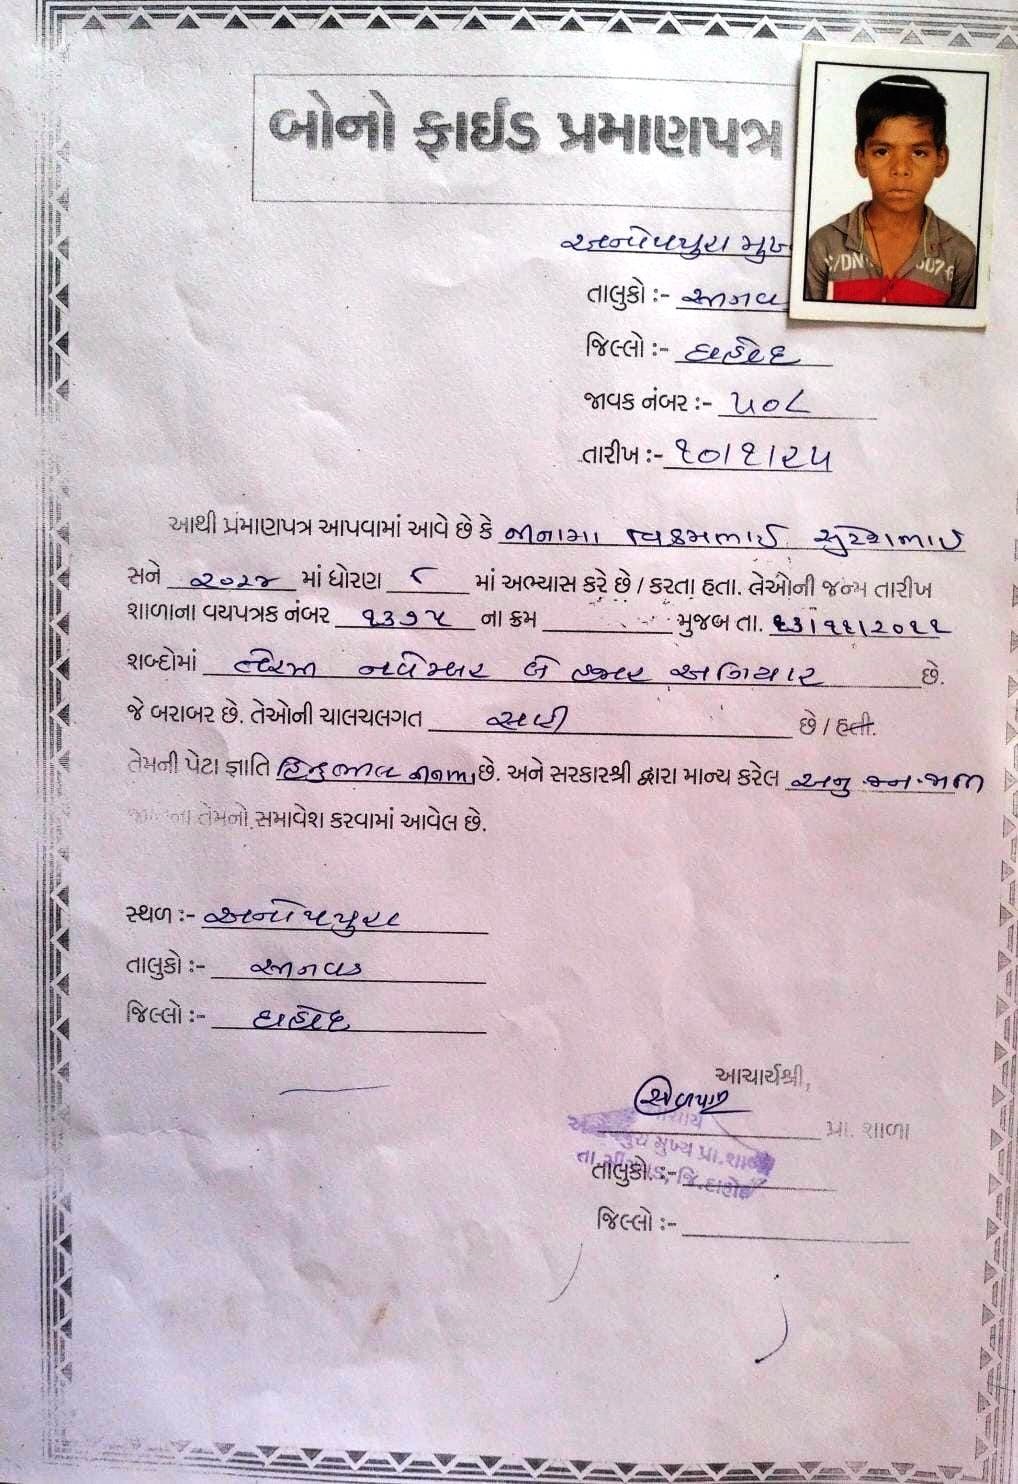 બોનો ફાઈડ પ્રમાણપત્ર
અનોપપુરા મુખ
તાલુકો :-
જિલ્લો :- દાહોદ
જાવક નંબર :- ૫૦૮
તારીખ :- ૧૦/૧/૨૫
આથી પ્રમાણપત્ર આપવામાં આવે છે કે નીનામા વિક્રમભાઈ સુરેશભાઈ
સને ૨૦૨૪ માં ધોરણ ૮ માં અભ્યાસ કરે છે / કરતા હતા. તેઓની જન્મ તારીખ
શાળાના વયપત્રક નંબર ૧૩૭૫ ના ક્રમ મુજબ તા. ૧૩/૧૧/૨૦૧૧
શબ્દોમાં તેરમી નવેમ્બર બે હજાર અગિયાર છે.
જે બરાબર છે. તેઓની ચાલચલગત સારી છે / હતી.
તેમની પેટા જ્ઞાતિ હિન્દુ ભીલ છે. અને સરકારશ્રી દ્વારા માન્ય કરેલ અનુ જન.જાતિ
તેમનો સમાવેશ કરવામાં આવેલ છે.
સ્થળ :- અનોપપુરા
તાલુકો :-
જિલ્લો :- દાહોદ
આચાર્યશ્રી,
આચાર્ય
પ્રા. શાળા
મુખ્ય પ્રા.શાળા
તાલુકો :-
જિ.દાહોદ
જિલ્લો :-